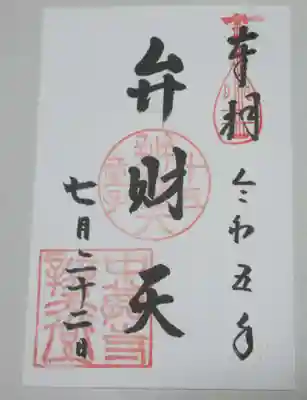 奉拝
令和五年
弁財天
七月二十二日